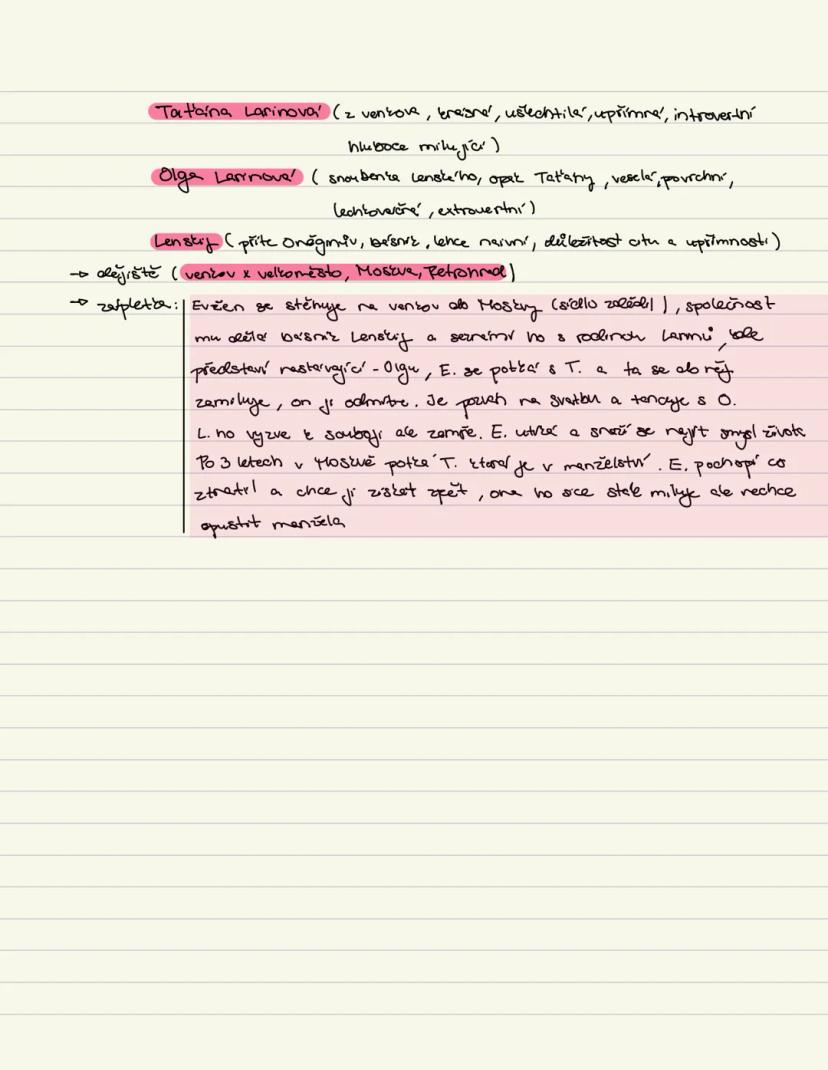 Taťána Larinová (z venkova, krásná, ušlechtilá, upřímná, introvertní
hluboce milující)
Olga Larinová (snoubenka Lenského, opak Taťány, veselá, povrchní,
lehkovážná, extrovertní)
Lenskij (přítel Oněginův, básník, lehce naivní, důležitost citu a upřímnosti)
→ dějiště (venkov x velkoměsto, Moskva, Petrohrad)
→ zápletka: Evžen se stěhuje na venkov do Moskvy (sídlo zdědil), společnost
mu dělá básník Lenskij a seznámí ho s rodinou Larinů, kde
představí nastávající - Olgu, E. se potká s T. a ta se do něj
zamiluje, on ji odmítne. Je pozván na svatbu a tancuje s O.
L. ho vyzve k souboji ale zemře. E. utíká a snaží se najít smysl života
Po 3 letech v Moskvě potká T. která je v manželství. E. pochopí co
ztratil a chce ji získat zpět, ona ho sice stále miluje ale nechce
opustit manžela